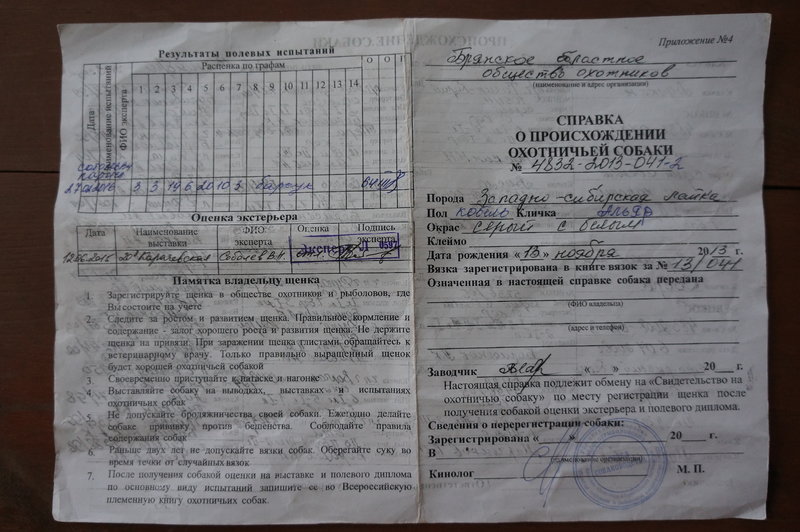 Результаты полевых испытаний
Расценка по графам
О О П
Дата
Наименование испытаний
ФИО эксперта
1 2 3 4 5 6 7 8 9 10 11 12 13 14
3 3 14 6 20 10 3 барсук
Оценка экстерьера
Дата Наименование выставки ФИО эксперта Оценка Подпись эксперта
12.06.2015 20я Карачевская Соболев В.Н. отл.
Эксперт
Памятка владельцу щенка
1. Зарегистрируйте щенка в обществе охотников и рыболовов, где
Вы состоите на учете
2. Следите за ростом и развитием щенка. Правильное кормление и
содержание - залог хорошего роста и развития щенка. Не держите
щенка на привязи. При заражении щенка глистами обращайтесь к
ветеринарному врачу. Только правильно выращенный щенок
будет хорошей охотничьей собакой
3. Своевременно приступайте к натаске и нагонке
4. Выставляйте собаку на выводках, выставках и испытаниях
охотничьих собак
5. Не допускайте бродяжничества своей собаки. Ежегодно делайте
собаке прививку против бешенства. Соблюдайте правила
содержания собак
6. Раньше двух лет не допускайте вязки собак. Оберегайте суку во
время течки от случайных вязок
7. После получения собакой оценки на выставке и полевого диплома
по основному виду испытаний запишите ее во Всероссийскую
племенную книгу охотничьих собак
Приложение №4
Брянское областное
общество охотников
(наименование и адрес организации)
СПРАВКА
О ПРОИСХОЖДЕНИИ
ОХОТНИЧЬЕЙ СОБАКИ
№ 4832-2013-041-2
Порода Западно-сибирская лайка
Пол кобель Кличка Альдр
Окрас Серый с белым
Клеймо
Дата рождения «13» ноября 2013 г.
Вязка зарегистрирована в книге вязок за № 13/041
Означенная в настоящей справке собака передана
(ФИО владельца)
(адрес и телефон)
Заводчик « » 20 г.
Настоящая справка подлежит обмену на «Свидетельство на
охотничью собаку» по месту регистрации щенка после
получения собакой оценки экстерьера и полевого диплома.
Сведения о перерегистрации собаки:
Зарегистрирована « » 20 г.
В
(наименование организации)
Кинолог М. П.